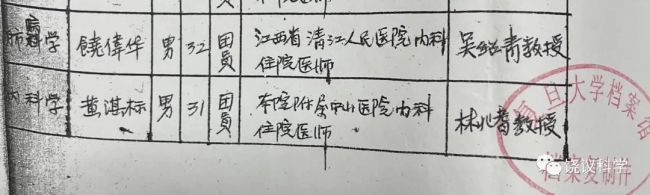 肺病科学 饒偉华 男 32 团員 江西省清江人民医院内科 吴绍青教授
住院医师
内科学 黄淇标 男 31 团員 本院附属中山医院内科 林兆耆教授
住院医师
旦大学档案馆
档案复制件
饶议科学